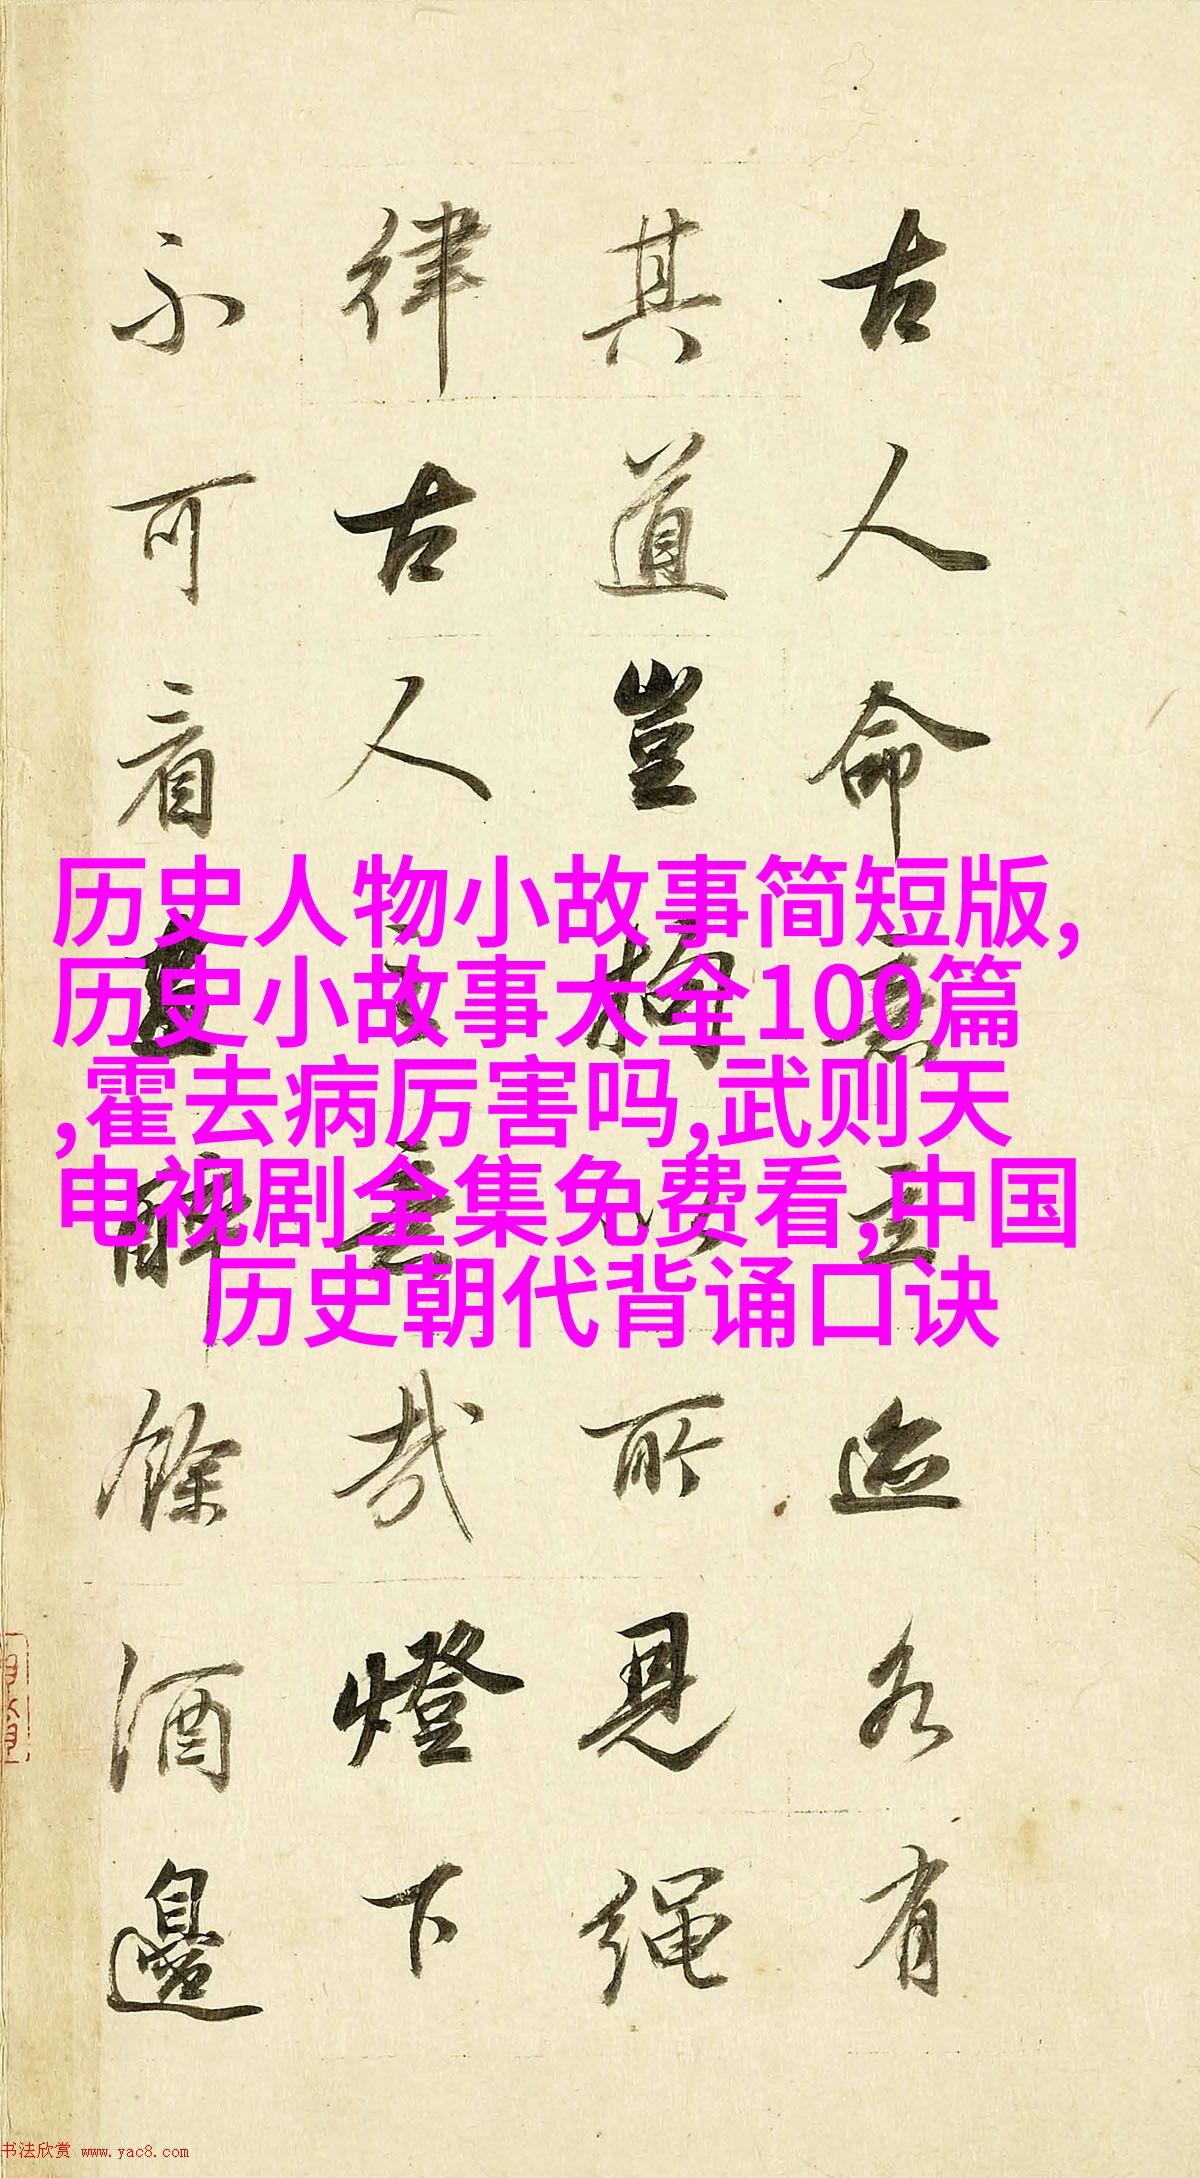 古人命意立迹各有
其道豈拘以所見繩
律古人之意哉燈下
不可看且醉餘酒邊
历史人物小故事简短版,
历史小故事大全100篇
,霍去病厉害吗,武则天
电视剧全集免费看,中国
历史朝代背诵口诀
书法欣赏 www.yac8.com